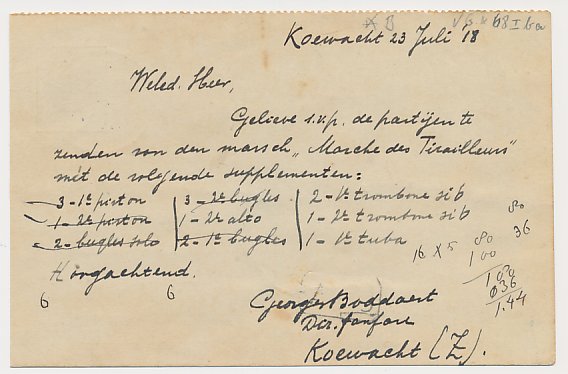 Koewacht 23 Juli '18
Weled. Heer,
Gelieve s.v.p. de partijen te
zenden van den marsch „Marche des Tirailleurs"
met de volgende supplementen:
3 - 1e piston | 3 - 2e bugles | 2 - 1e trombone sib
1 - 2e piston | 1 - 2e alto | 1 - 2e trombone sib
2 - bugles solo | 2 - 1e bugles | 1 - 1e tuba
Hoogachtend.
16 x 5
80
100
180
036
1.44
80
36
6 6
Georges Boddaert
Dir. fanfare
Koewacht (Z).